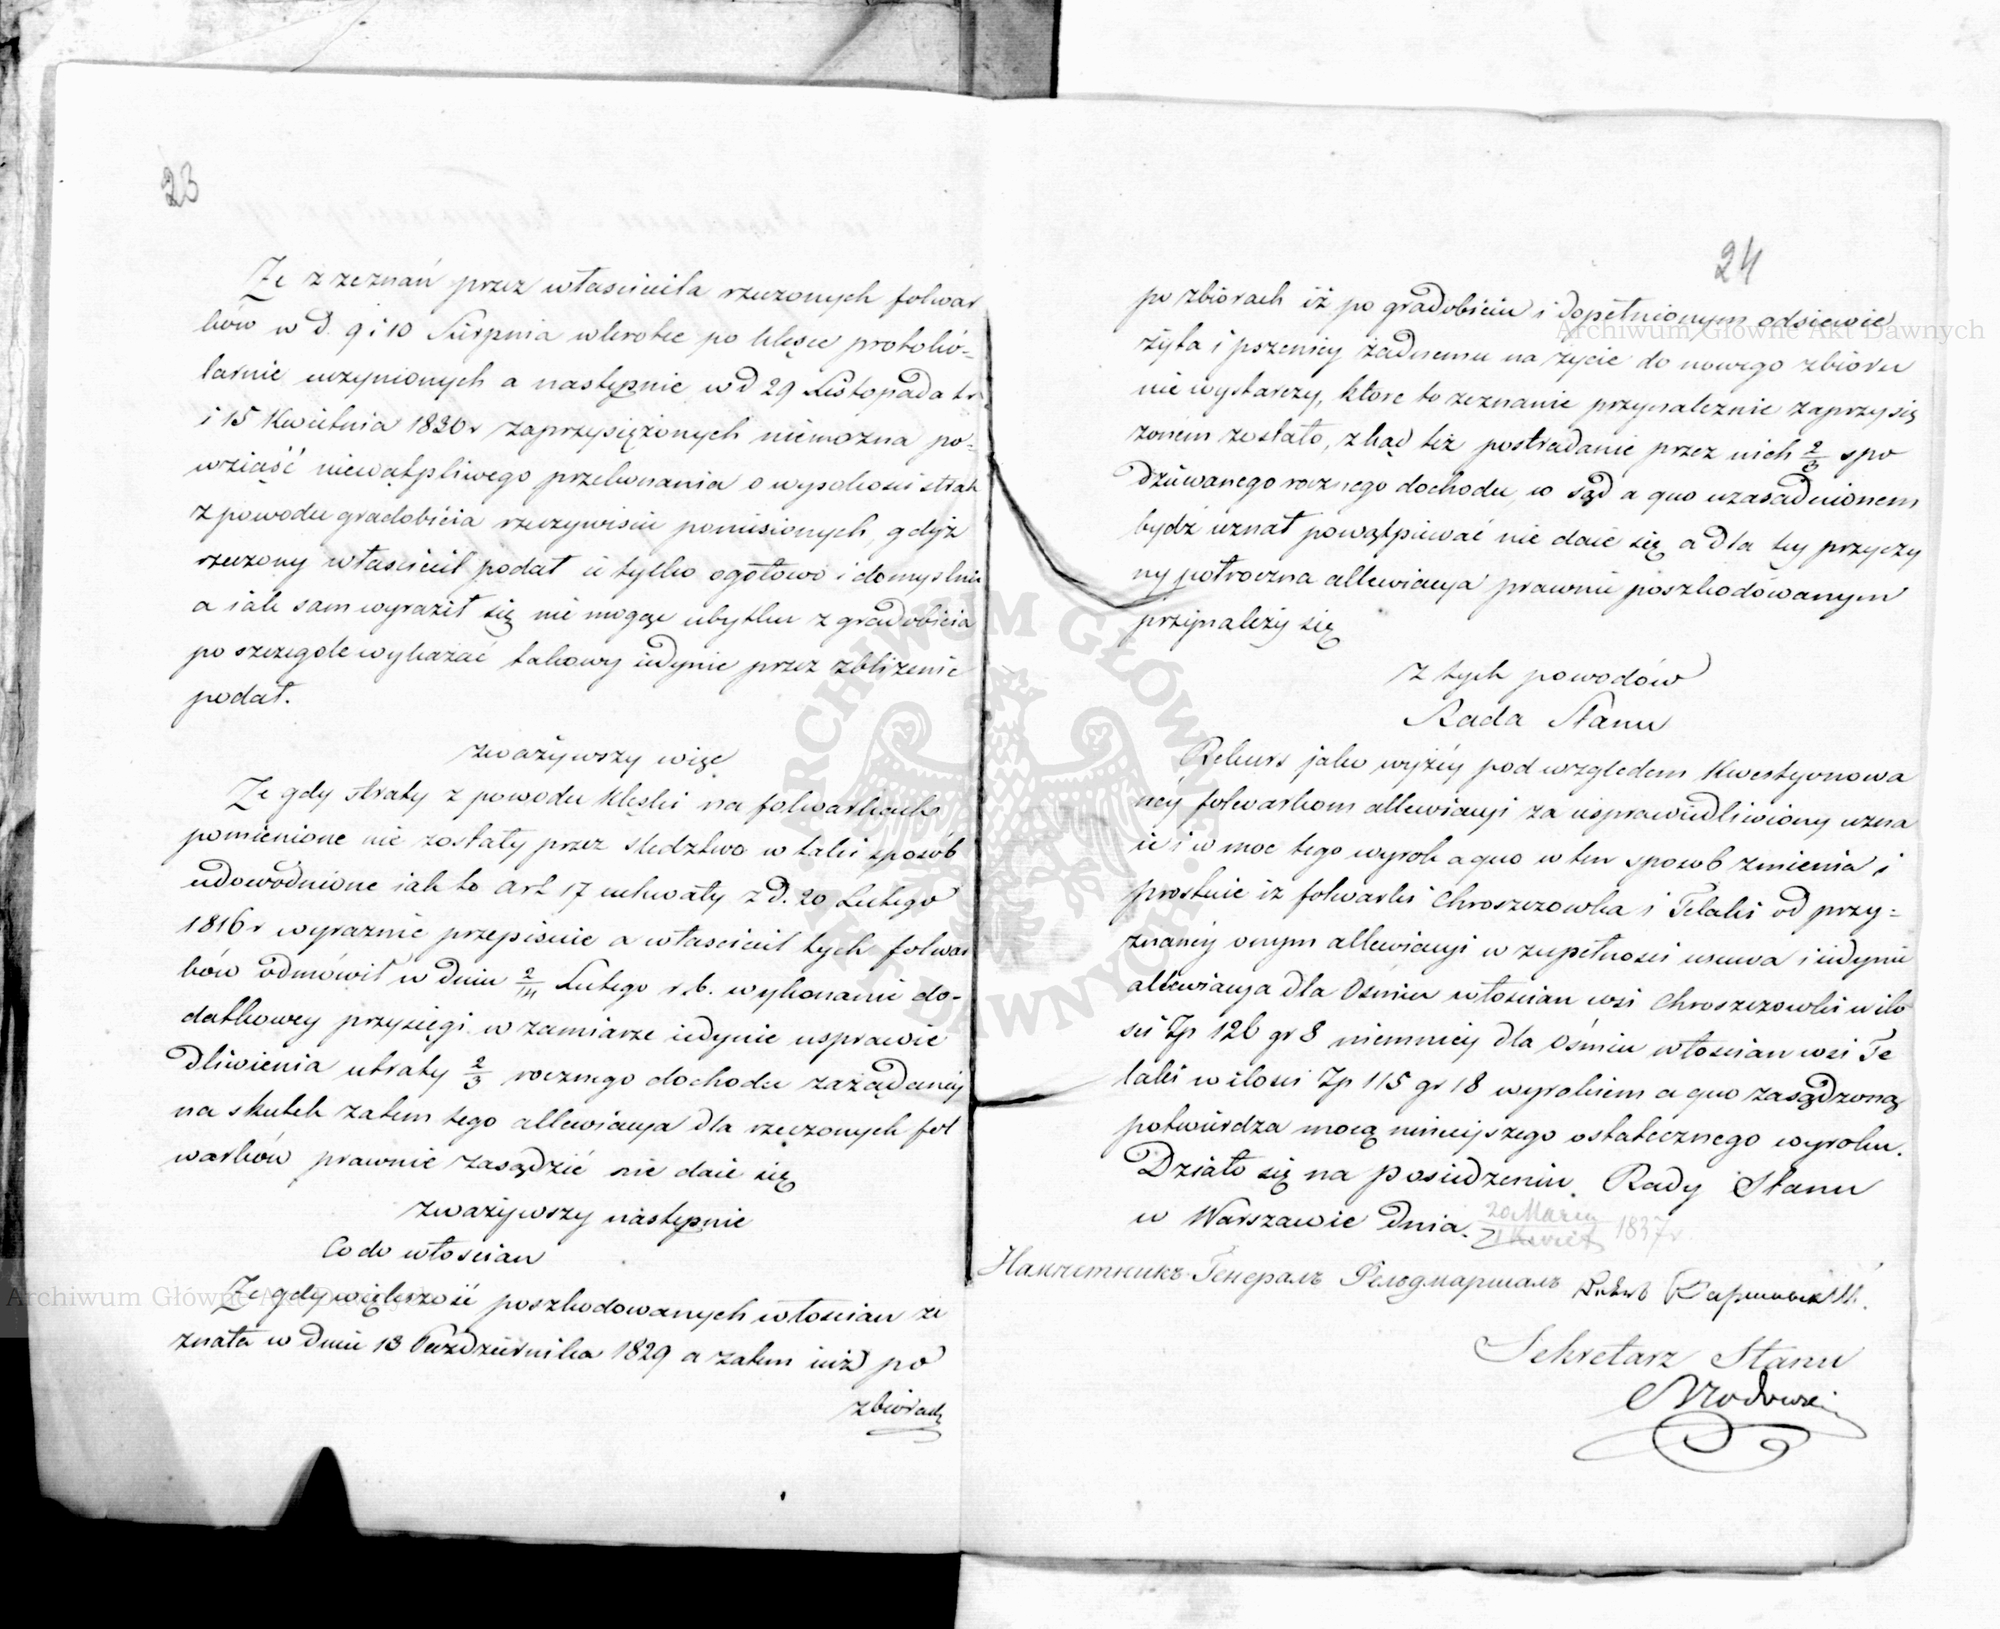 23
Że z zeznań przez właściciela rzeczonych folwar
ków w d. 9 i 10 Sierpnia wkrotce po klęsce protokó-
larnie uczynionych a następnie w d 29 Listopada t.r.
i 15 Kwietnia 1830 r zaprzysiężonych niemożna po-
wziąść niewątpliwego przekonania o wysokosci strat
z powodu gradobicia rzeczywiscie poniesionych, gdyż
rzeczony właściciel podał ie tylko ogółowo i domyslnie
a iak sam wyraził się nie mogąc ubytku z gradobicia
poszczególe wykazać takowy iedynie przez zbliżenie
podał.
zważywszy więc
Że gdy straty z powodu klęski na folwarkach
pomienione nie zostały przez sledztwo w taki sposób
udowodnione iak to art 17 uchwały z d. 20 Lutego
1816 r wyraznie przepisuie a właściciel tych folwar
ków odmówił w dniu 2/14 Lutego r. b. wykonanie do-
datkowey przysięgi w zamiarze iedynie usprawie
dliwienia utraty 2/3 rocznego dochodu zażądaney
na skutek zatem tego allewiacya dla rzeczonych fol
warków prawnie zasądzić nie daie się
zważywszy następnie
Co do włoscian
Że gdy większość poszkodowanych włoscian ze
znała w dniu 13 Października 1829 a zatem iuż po
zbiorach
24
po zbiorach iż po gradobiciu i dopełnionym odsiewie
żyta i pszenicy żadnemu na życie do nowego zbioru
nie wystarczy, ktore to zeznanie przynależnie zaprzysię
żonem zostało, zkąd też postradanie przez nich 2/3 spo
dziewanego rocznego dochodu, w Sąd a quo uzasadnionem
bydź uznał powątpiewać nie daie się a dla tey przyczy
ny połroczna allewiacya prawnie poszkodówanym
przynależy się
Z tych powodów
Rada Stanu
Rekurs jako wyżéy pod względem kwestyonowa
ney folwarkom allewiacyi za usprawiedliwiony uzna
ie i w moc tego wyrok a quo w ten sposob zmienia i
prostuie iż folwarki Chroszczowka i Telaki od przy-
znanéy onym allewiacyi w zupełnosci usuwa i iedynie
allewiacya dla Ośmiu włoscian wsi Chroszczowki w ilo
sci Zp 126 gr 8 niemniey dla Ośmiu włoscian wsi Te
laki w ilosci Zp 115 gr 18 wyrokiem a quo zasądzoną
potwierdza mocą ninieyszego ostatecznego wyroku.
Działo się na posiedzeniu Rady Stanu
w Warszawie dnia 20 Marca / 1 Kwiet 1837 r.
Намѣстникъ Генералъ Фельдмаршалъ
Sekretarz Stanu
Archiwum Główne Akt Dawnych
Archiwum Główne Akt Dawnych
ARCHIWUM GŁÓWNE AKT DAWNYCH